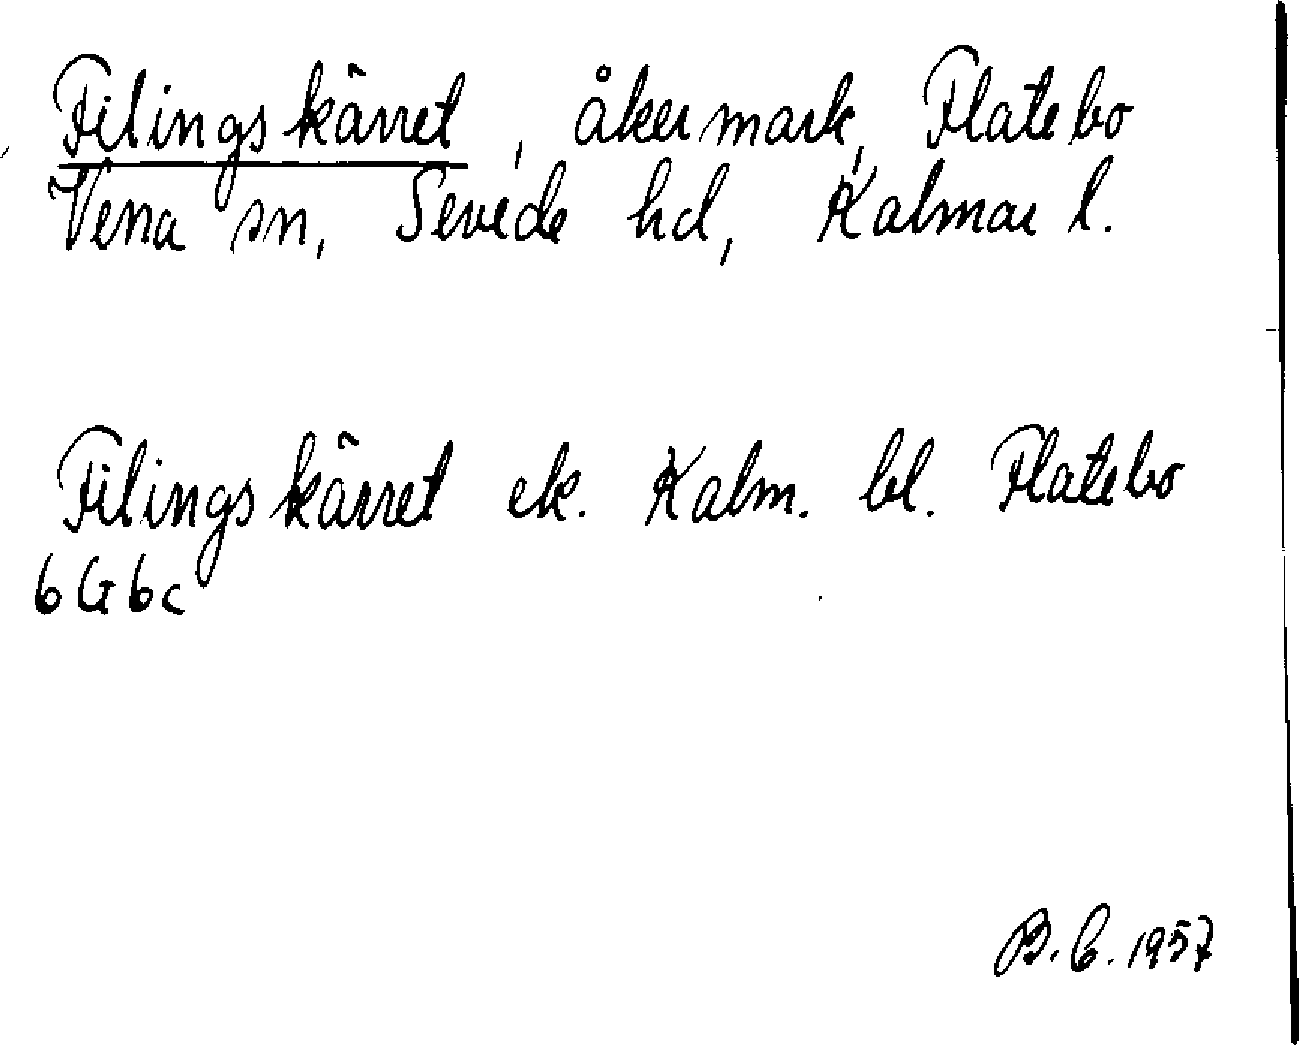 Filingskärret, åkermark, Flatebo
Vena sn, Sevede hd, Kalmar l.
Filingskärret ek. Kalm. bl. Flatebo
6G6c
B.C. 1957